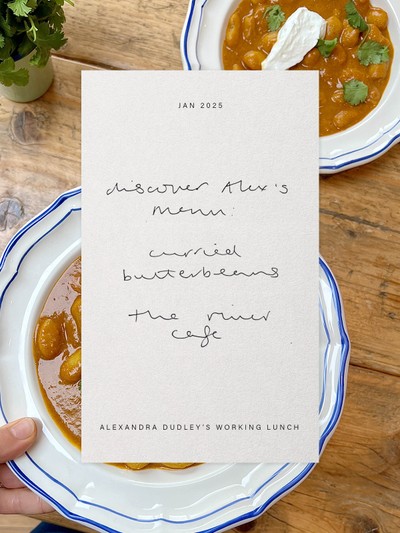 JAN 2025
discover Alex's
menu:
curried
butterbeans
the river
cafe
ALEXANDRA DUDLEY'S WORKING LUNCH